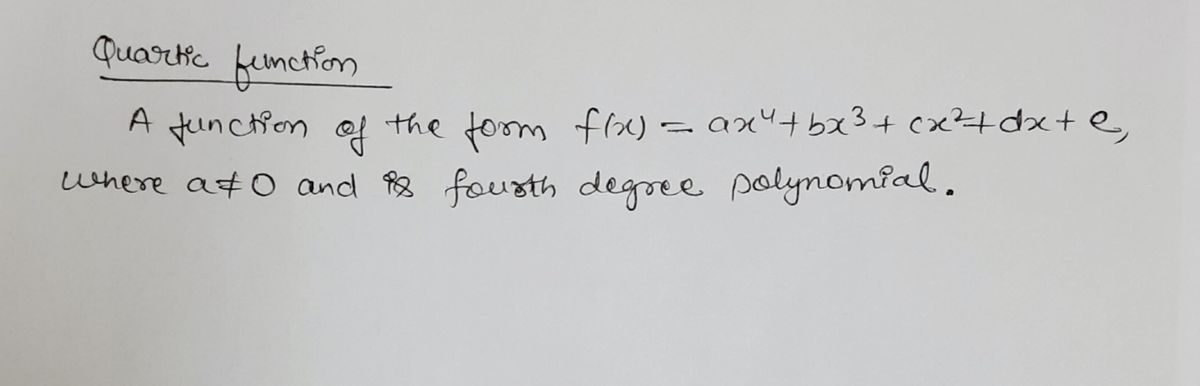 Quartic function
A function of the form f(x) = ax⁴ + bx³ + cx² + dx + e,
where a ≠ 0 and is fourth degree polynomial.